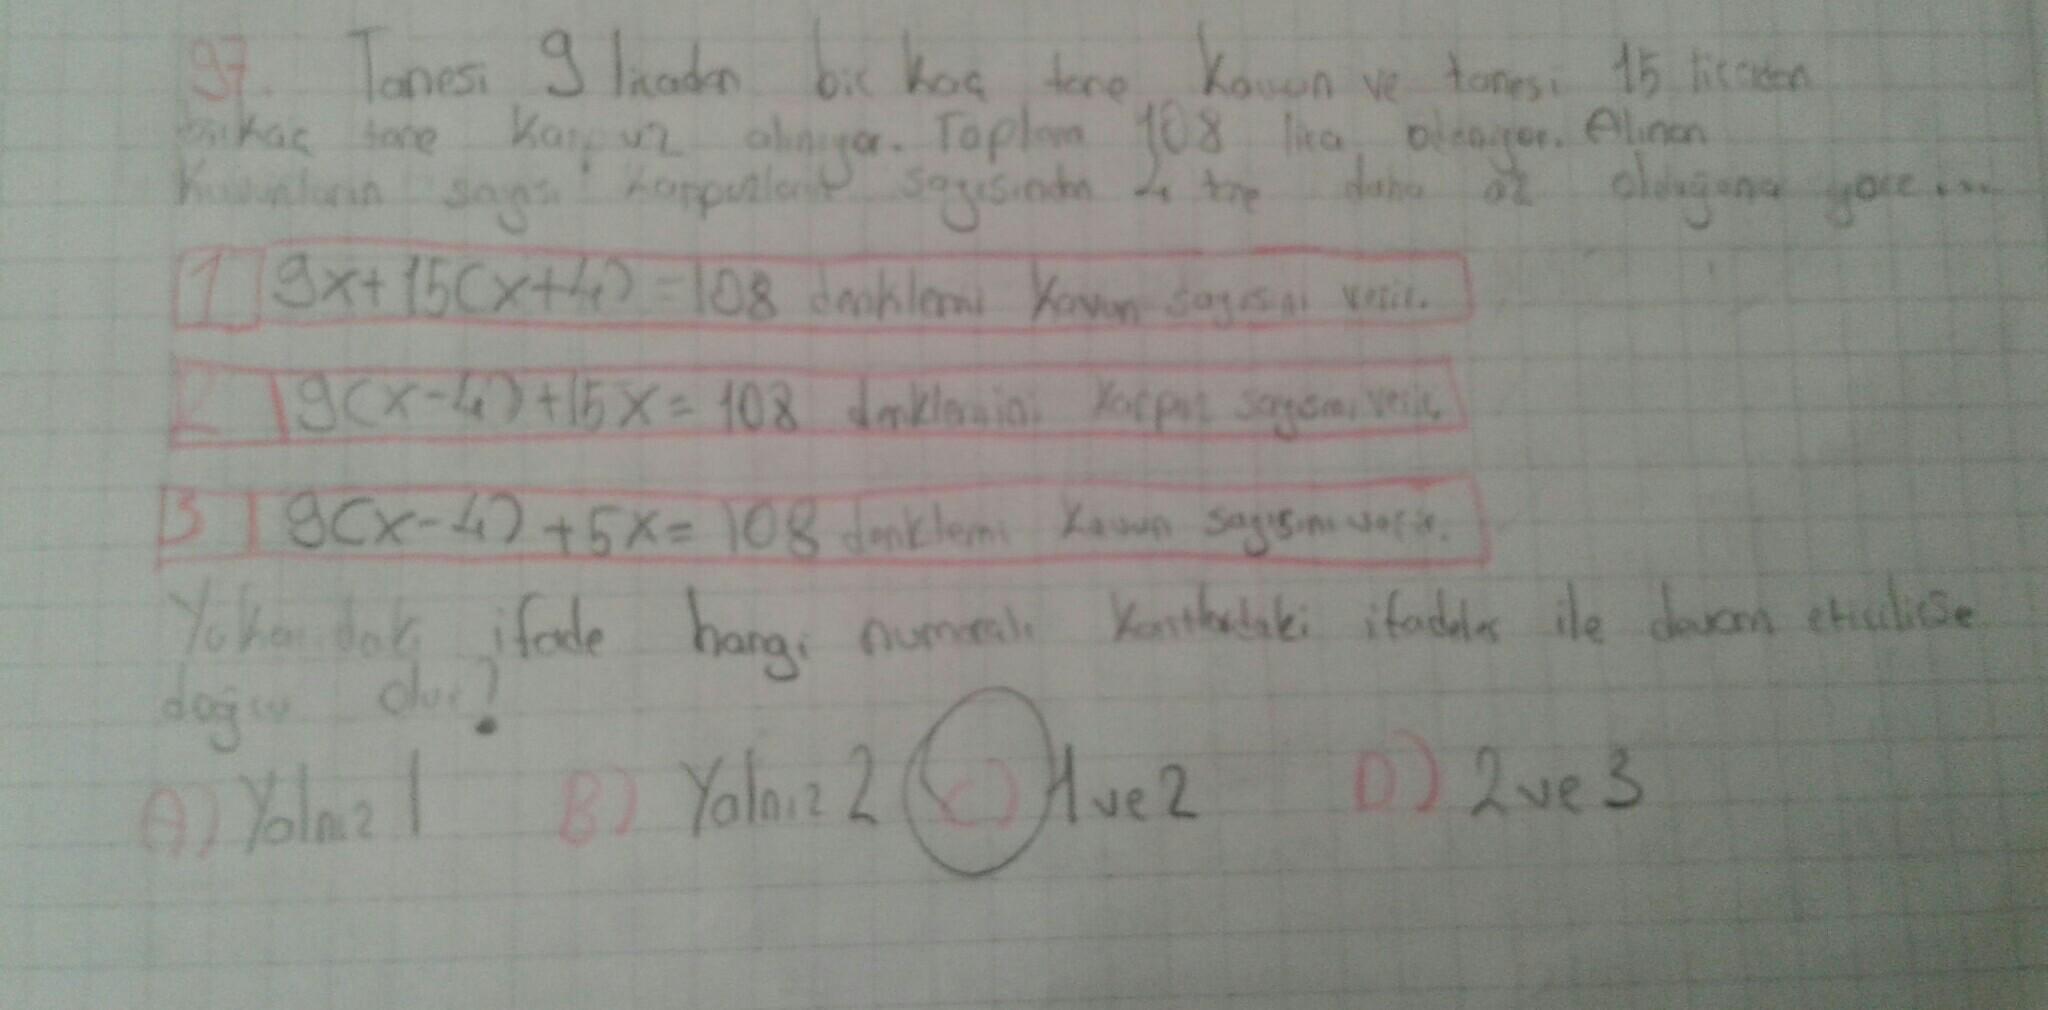 97. Tanesi 9 liradan bir kaç tane Kavun ve tanesi 15 liradan
birkaç tane Karpuz alınıyor. Toplam 108 lira ödeniyor. Alınan
Kavunların sayısı karpuzların sayısından 4 tane daha az olduğuna göre...
1 9x+15(x+4)=108 denklemi Kavun sayısını verir.
2 9(x-4)+15x=108 denklemini Karpuz sayısını verir.
3 9(x-4)+5x=108 denklemi Kavun sayısını verir.
Yukarıdaki ifade hangi numaralı Karttaki ifadeler ile devam ettirilirse
doğru olur?
A) Yalnız 1 B) Yalnız 2 C) 1 ve 2 D) 2 ve 3